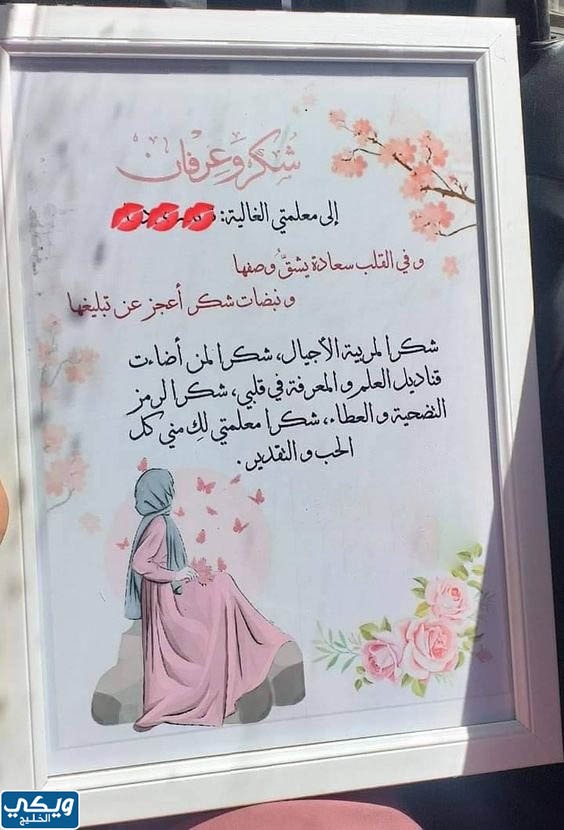 شُكر وَعِرفان
إلى معلمتي الغالية:
و في القلب سعادة يشقُّ وصفها
و نبضات شكر أعجز عن تبليغها
شكرا لمربية الأجيال، شكرا لمن أضاءت
قناديل العلم و المعرفة في قلبي، شكرا لرمز
التضحية و العطاء، شكرا معلمتي لكِ مني كل
الحب و التقدير .
ويكي
الخليج